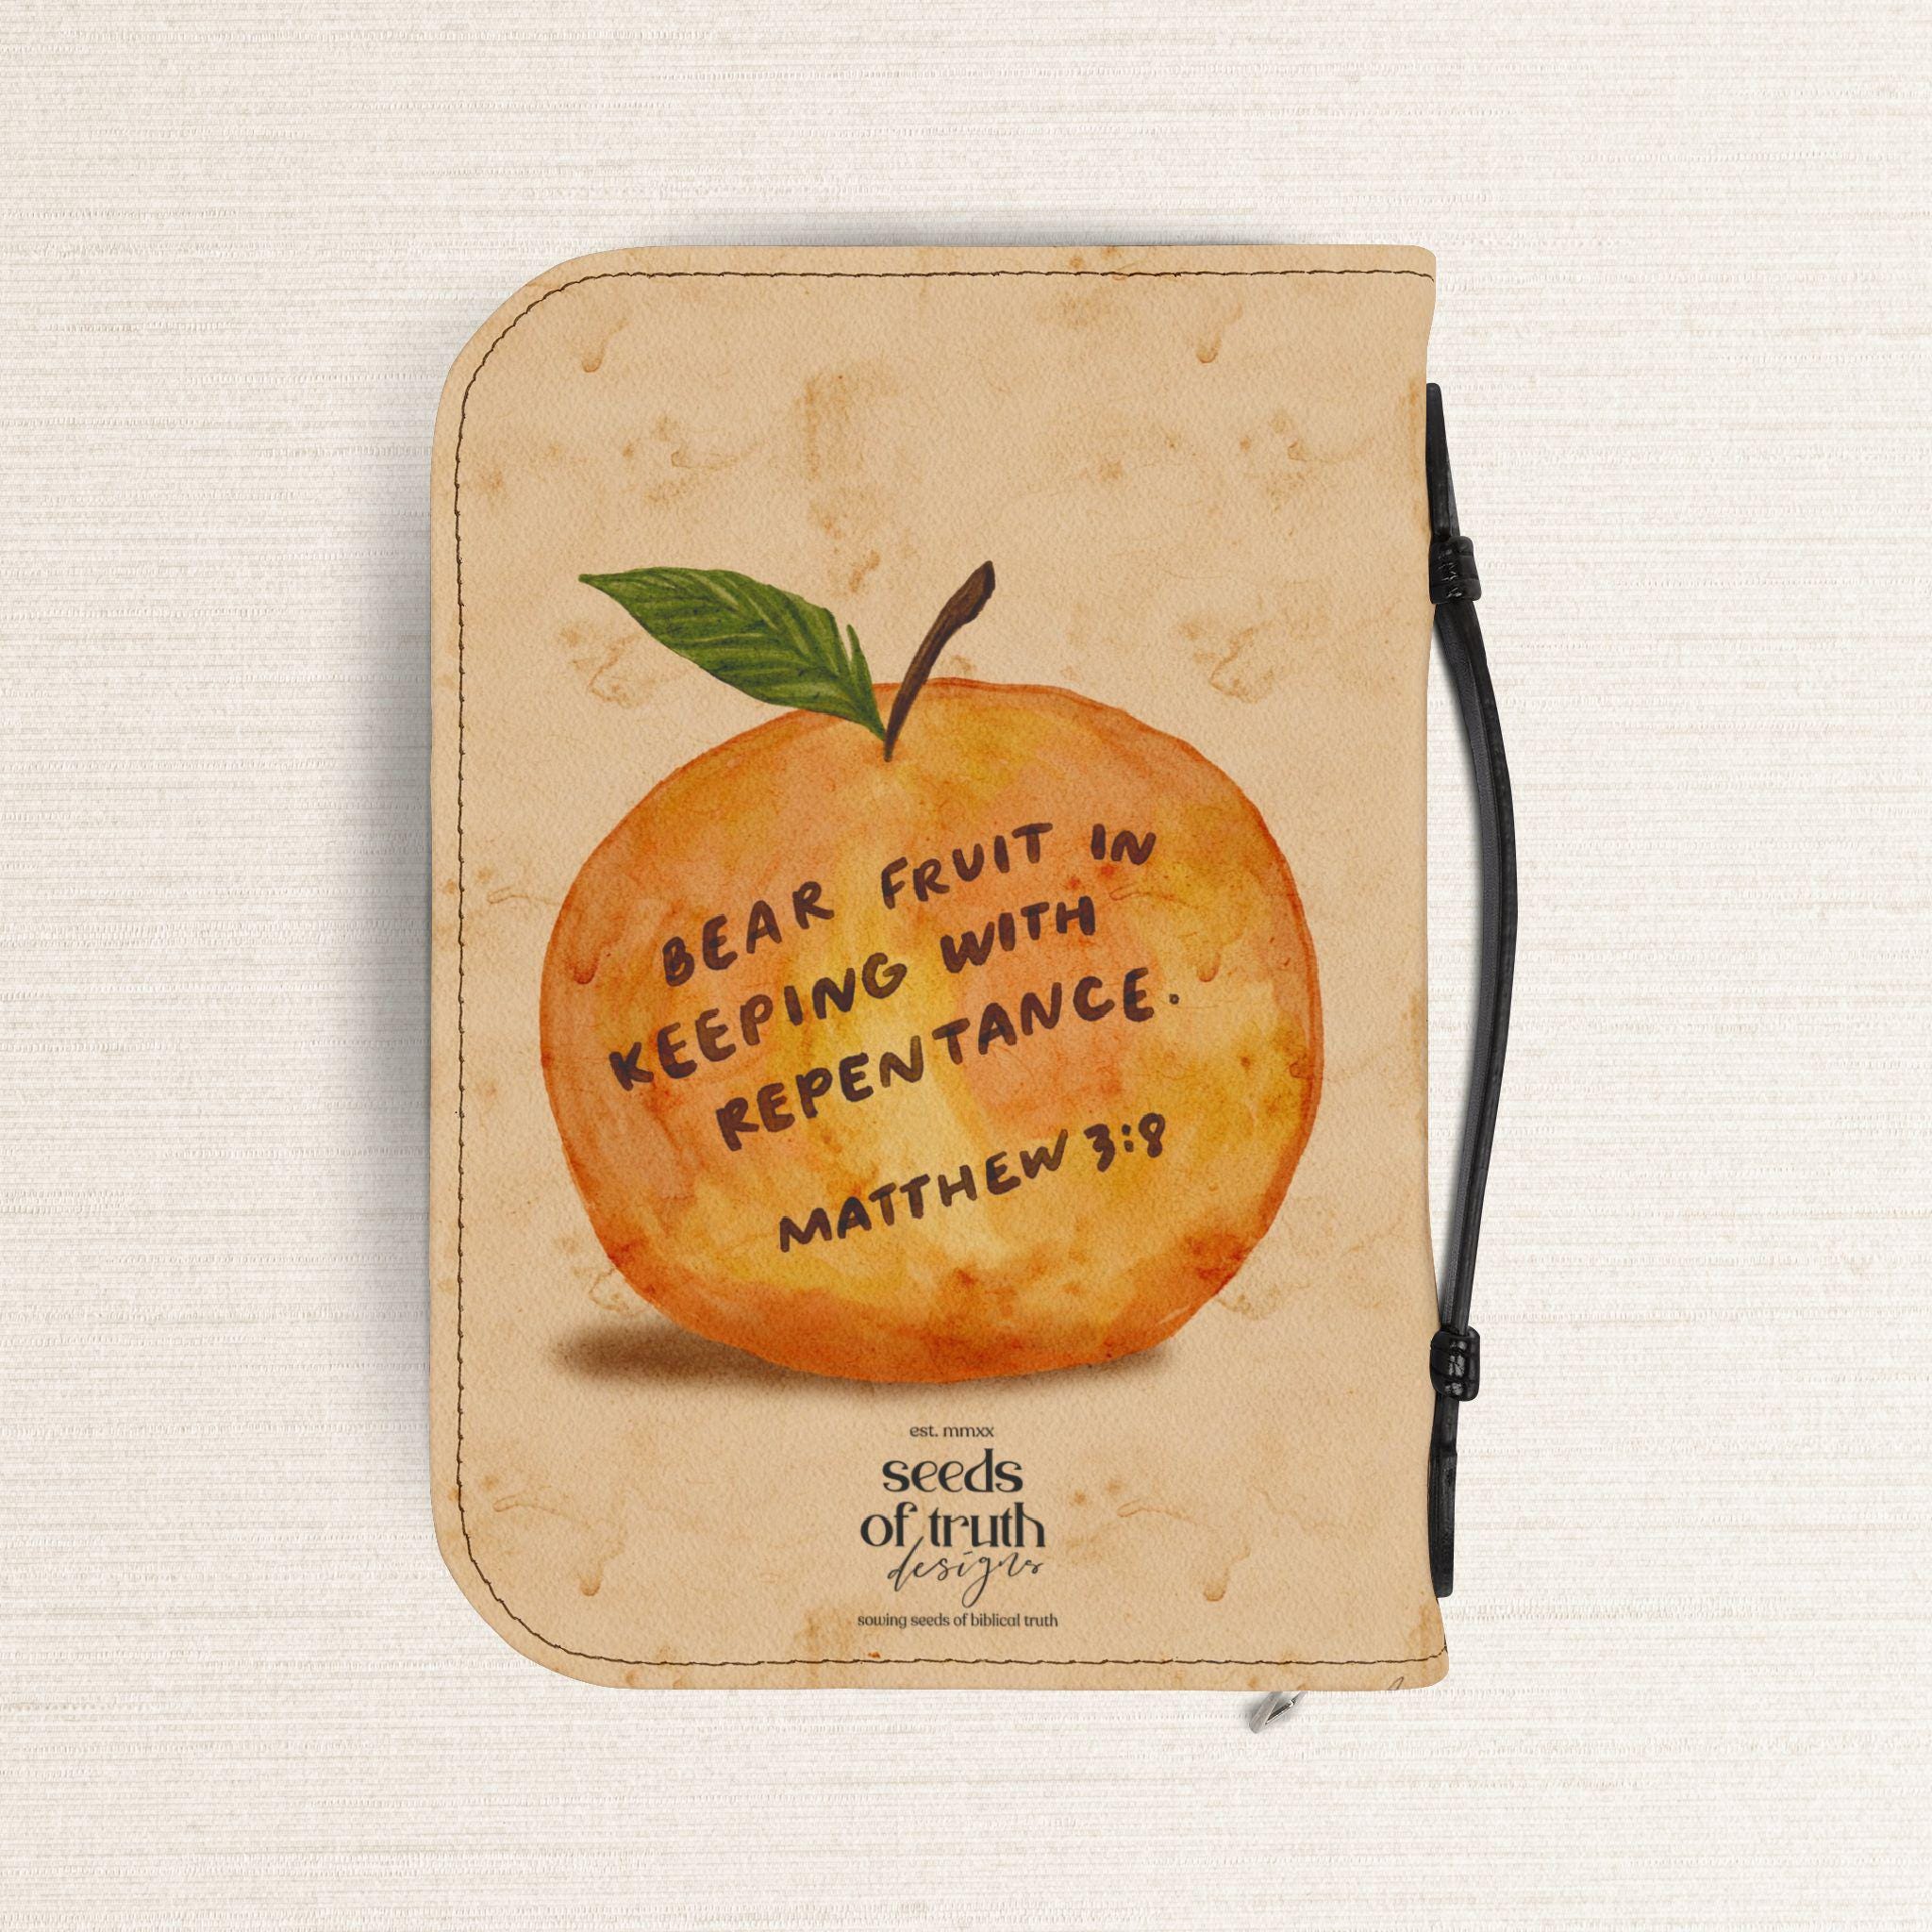 BEAR FRUIT IN
KEEPING WITH
REPENTANCE.
MATTHEW 3:8
est. mmxx
seeds
of truth
designs
sowing seeds of biblical truth